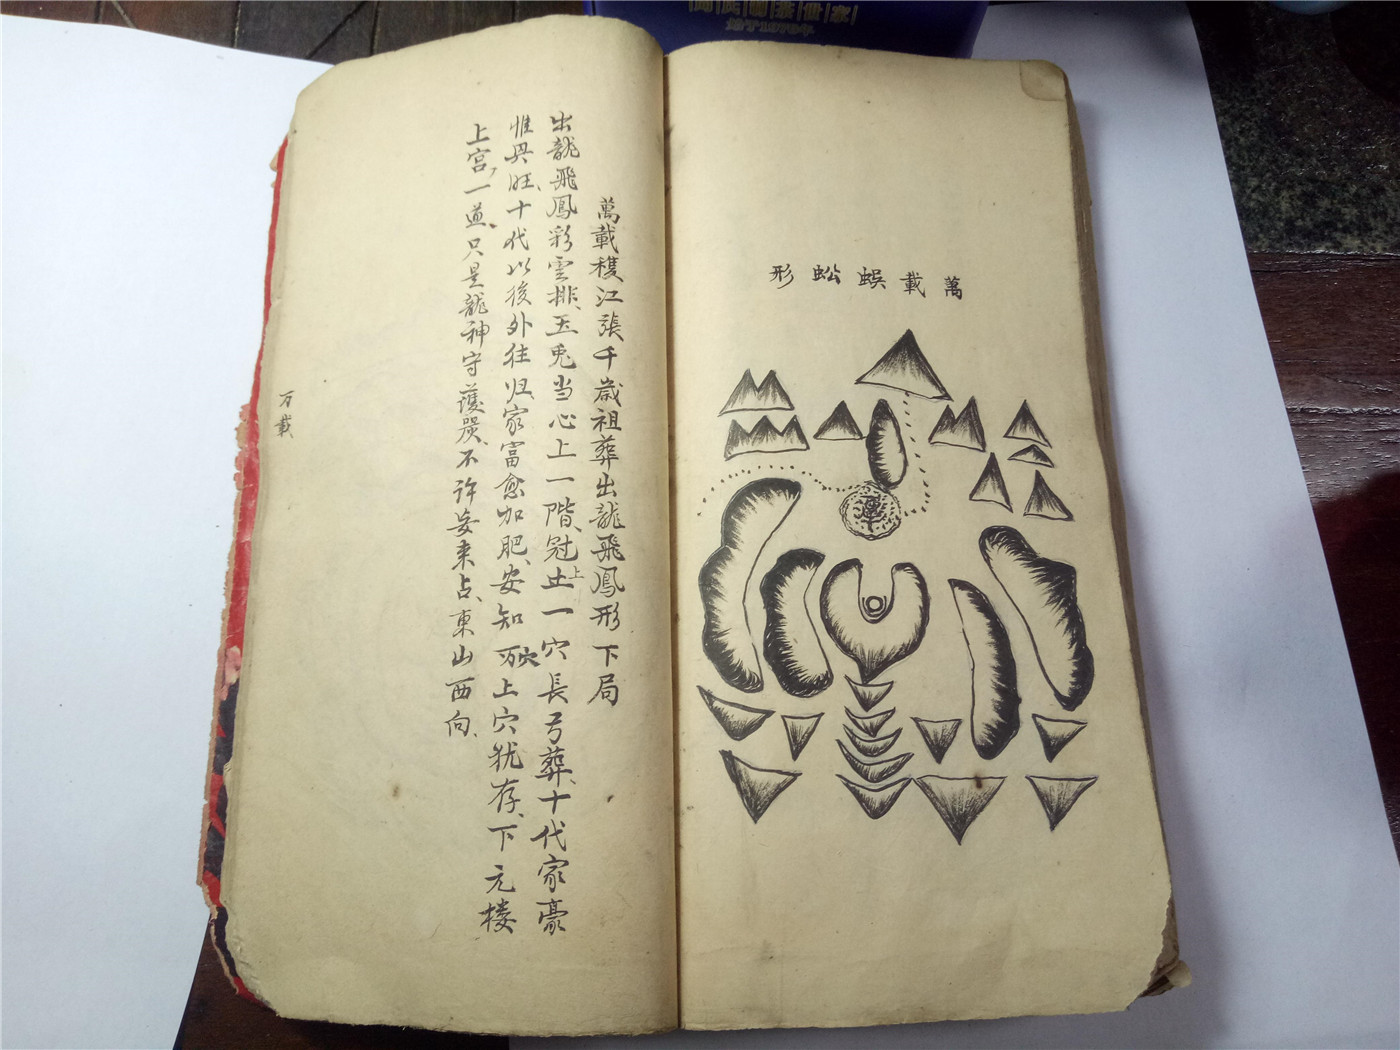 萬載蜈蚣形
萬載穫江張千歲祖葬出龍飛鳳形下局
出龍飛鳳彩雲排、玉兎当心上一階、冠土上一穴長弓葬、十代家豪
惟興旺、十代以後外往归、家富愈加肥、安知穴上穴犹存、下元楼
上宫、一道、只是龍神守護、不许妄来占、東山西向、
万載